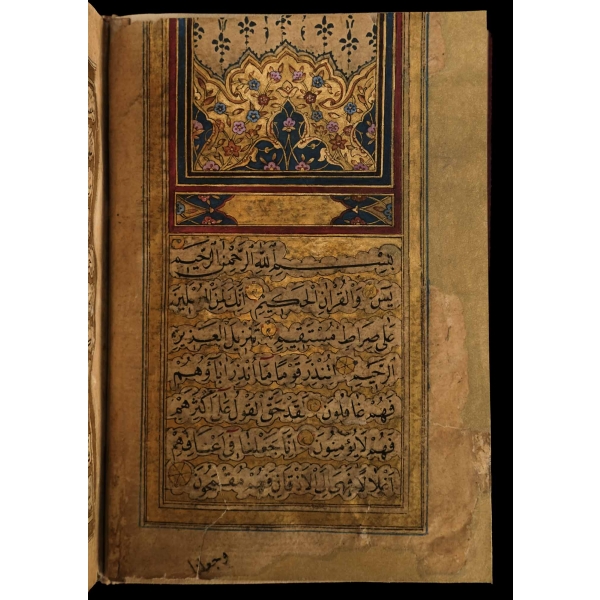 بِسْمِ اللّٰهِ الرَّحْمٰنِ الرَّحِيمِ
يٰسٓ وَالْقُرْاٰنِ الْحَكِيمِ اِنَّكَ لَمِنَ الْمُرْسَلِينَ
عَلٰى صِرَاطٍ مُسْتَقِيمٍ تَنْزِيلَ الْعَزِيزِ
الرَّحِيمِ لِتُنْذِرَ قَوْمًا مَا اُنْذِرَ اٰبَاؤُهُمْ
فَهُمْ غَافِلُونَ لَقَدْ حَقَّ الْقَوْلُ عَلٰى اَكْثَرِهِمْ
فَهُمْ لَا يُؤْمِنُونَ اِنَّا جَعَلْنَا فِى اَعْنَاقِهِمْ
اَغْلَالًا فَهِىَ اِلَى الْاَذْقَانِ فَهُمْ مُقْمَحُونَ
وجعلنا